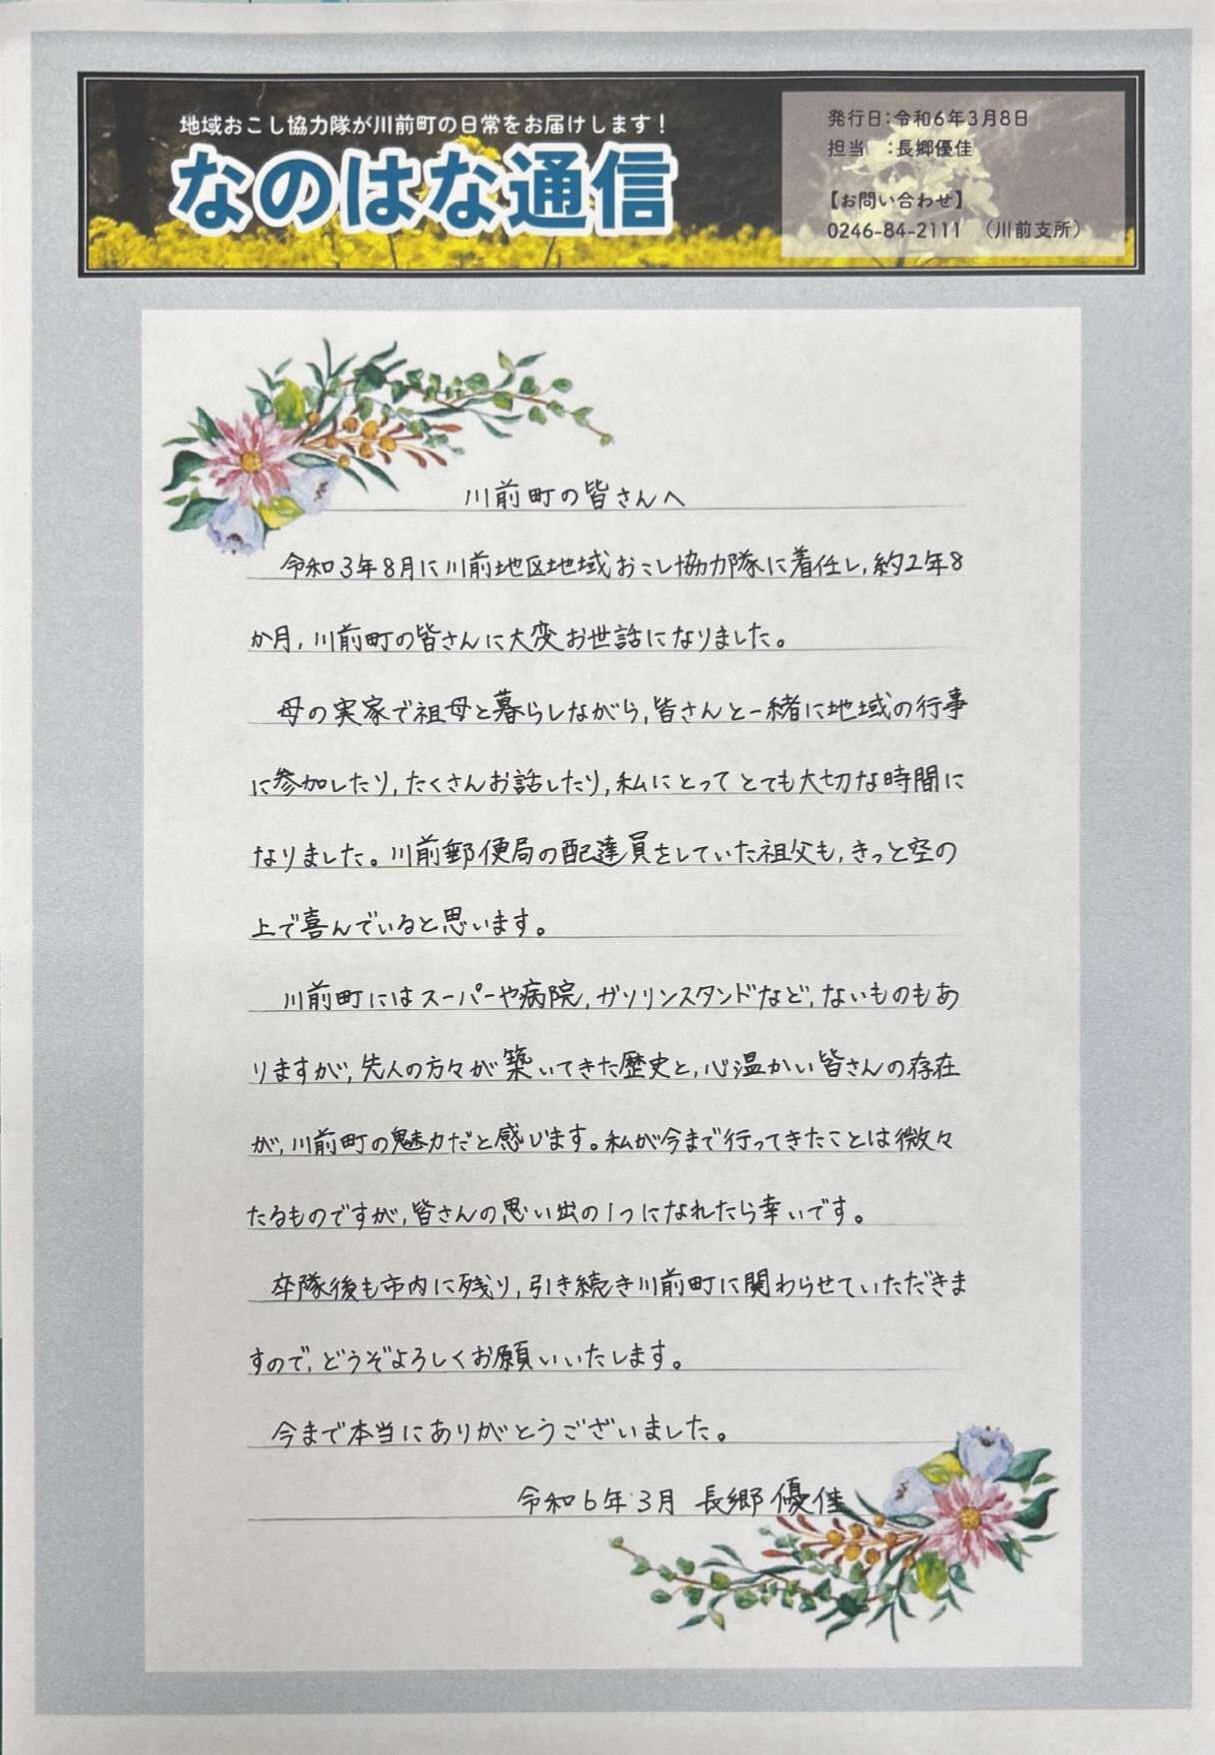 地域おこし協力隊が川前町の日常をお届けします！
なのはな通信
発行日：令和6年3月8日
担当　：長郷優佳
【お問い合わせ】
0246-84-2111　（川前支所）
川前町の皆さんへ
令和3年8月に川前地区地域おこし協力隊に着任し，約2年8
か月，川前町の皆さんに大変お世話になりました。
母の実家で祖母と暮らしながら，皆さんと一緒に地域の行事
に参加したり，たくさんお話したり，私にとってとても大切な時間に
なりました。川前郵便局の配達員をしていた祖父も，きっと空の
上で喜んでいると思います。
川前町にはスーパーや病院，ガソリンスタンドなど，ないものもあ
りますが，先人の方々が築いてきた歴史と，心温かい皆さんの存在
が，川前町の魅力だと感じます。私が今まで行ってきたことは微々
たるものですが，皆さんの思い出の1つになれたら幸いです。
卒隊後も市内に残り，引き続き川前町に関わらせていただきま
すので，どうぞよろしくお願いいたします。
今まで本当にありがとうございました。
令和6年3月 長郷優佳